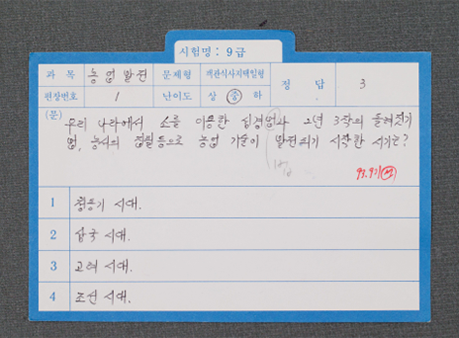 시험명 : 9급
과 목 농업발전 문제형 객관식사지택일형 정 답 3
편장번호 1 난이도 상 중 하
(문) 우리 나라에서 소를 이용한 심경법과 2년 3작의 돌려짓기
법, 농서의 집필등으로 농업 기술이 발전되기 시작한 시기는?
1 청동기 시대.
2 삼국 시대.
3 고려 시대.
4 조선 시대.